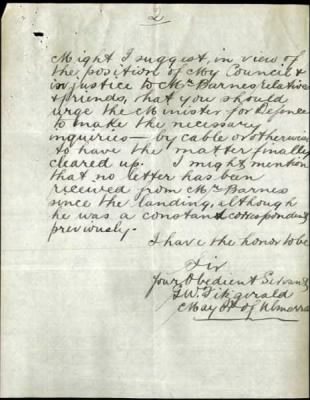 2
Might I suggest, in view of
the position of my Council &
in justice to Mr Barnes relatives
& friends, that you should
urge the Minister for Defence
to make the necessary
inquiries — by cable or otherwise
to have the matter finally
cleared up. I might mention
that no letter has been
received from Mr Barnes
since the landing, although
he was a constant correspondent
previously.
I have the honor to be
Sir
Your Obedient Servant
Fitzgerald
of Ulmarra